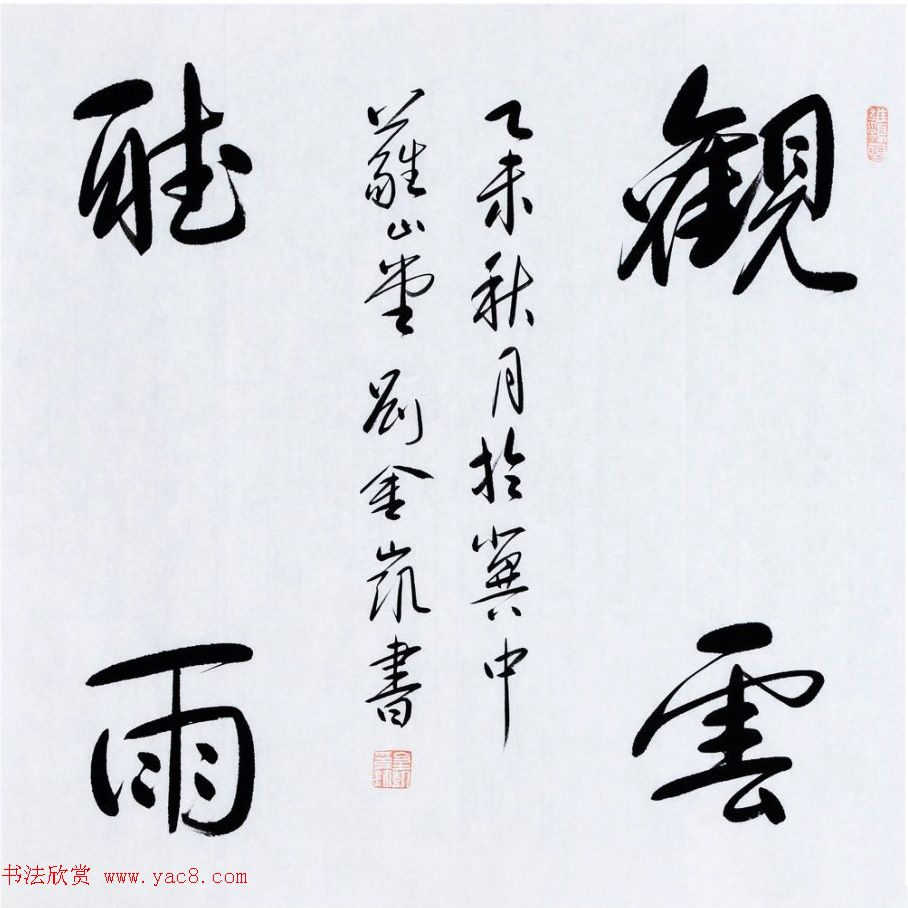 觀雲
乙未秋月於冀中
山堂劉金凱書
聽雨
书法欣赏 www.yac8.com